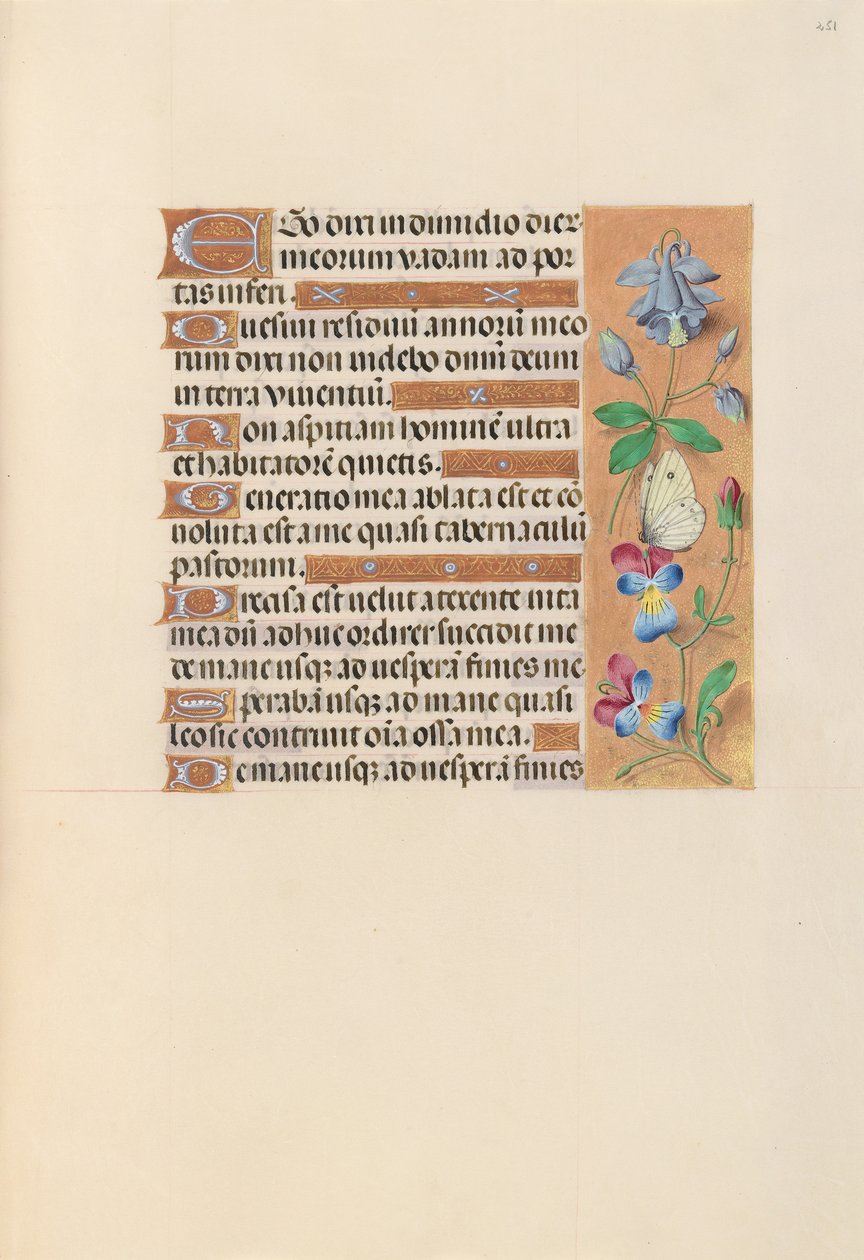 251
EGo dixi in dimidio dier
meorum vadam ad por
tas inferi.
Quesiui residuū annorū meo
rum dixi non videbo dnm̄ deum
in terra viuentiū.
Non aspitiam hominē ultra
et habitatorē quietis.
Generatio mea ablata est et cō
uoluta est a me quasi tabernaculū
pastorum.
Precisa est uelut a texente uita
mea dū adhuc ordirer succidit me
de mane usqꝫ ad uesperā finies me
Sperabā usqꝫ ad mane quasi
leo sic contriuit oīa ossa mea.
De mane usqꝫ ad uesperā finies